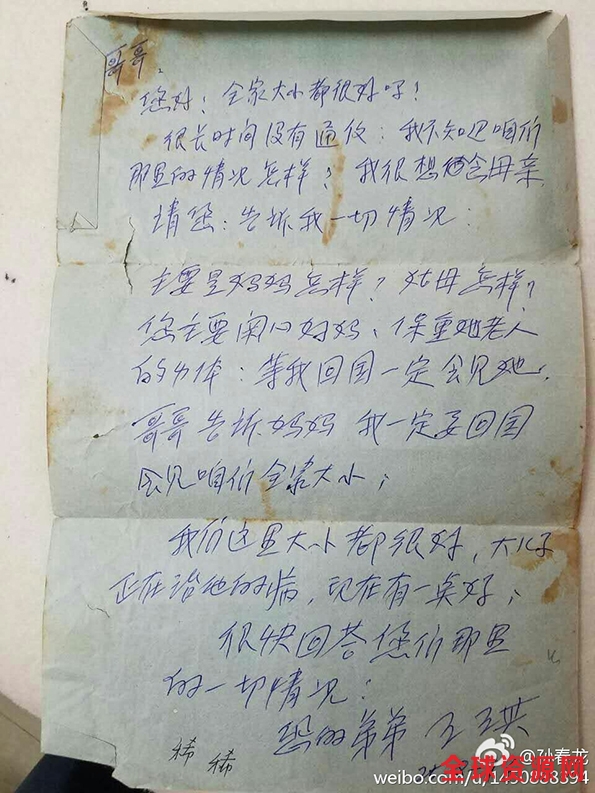 哥哥:
您好! 全家大小都很好吗!
很长时间没有通信: 我不知道咱们
那里的情况怎样? 我很想念母亲
请您: 告诉我一切情况:
主要是妈妈怎样? 姑母怎样?
您主要关心妈妈、保重她老人
的身体: 等我回国一定会见她.
哥哥告诉妈妈 我一定要回国
会见咱们全家大小;
我们这里大小都很好, 大儿子
正在治他的病, 现在有一点好;
很快回答您们那里
的一切情况:
您的弟弟 王琪
@孙春龙
全球资源网
weibo.com/u/1450883394